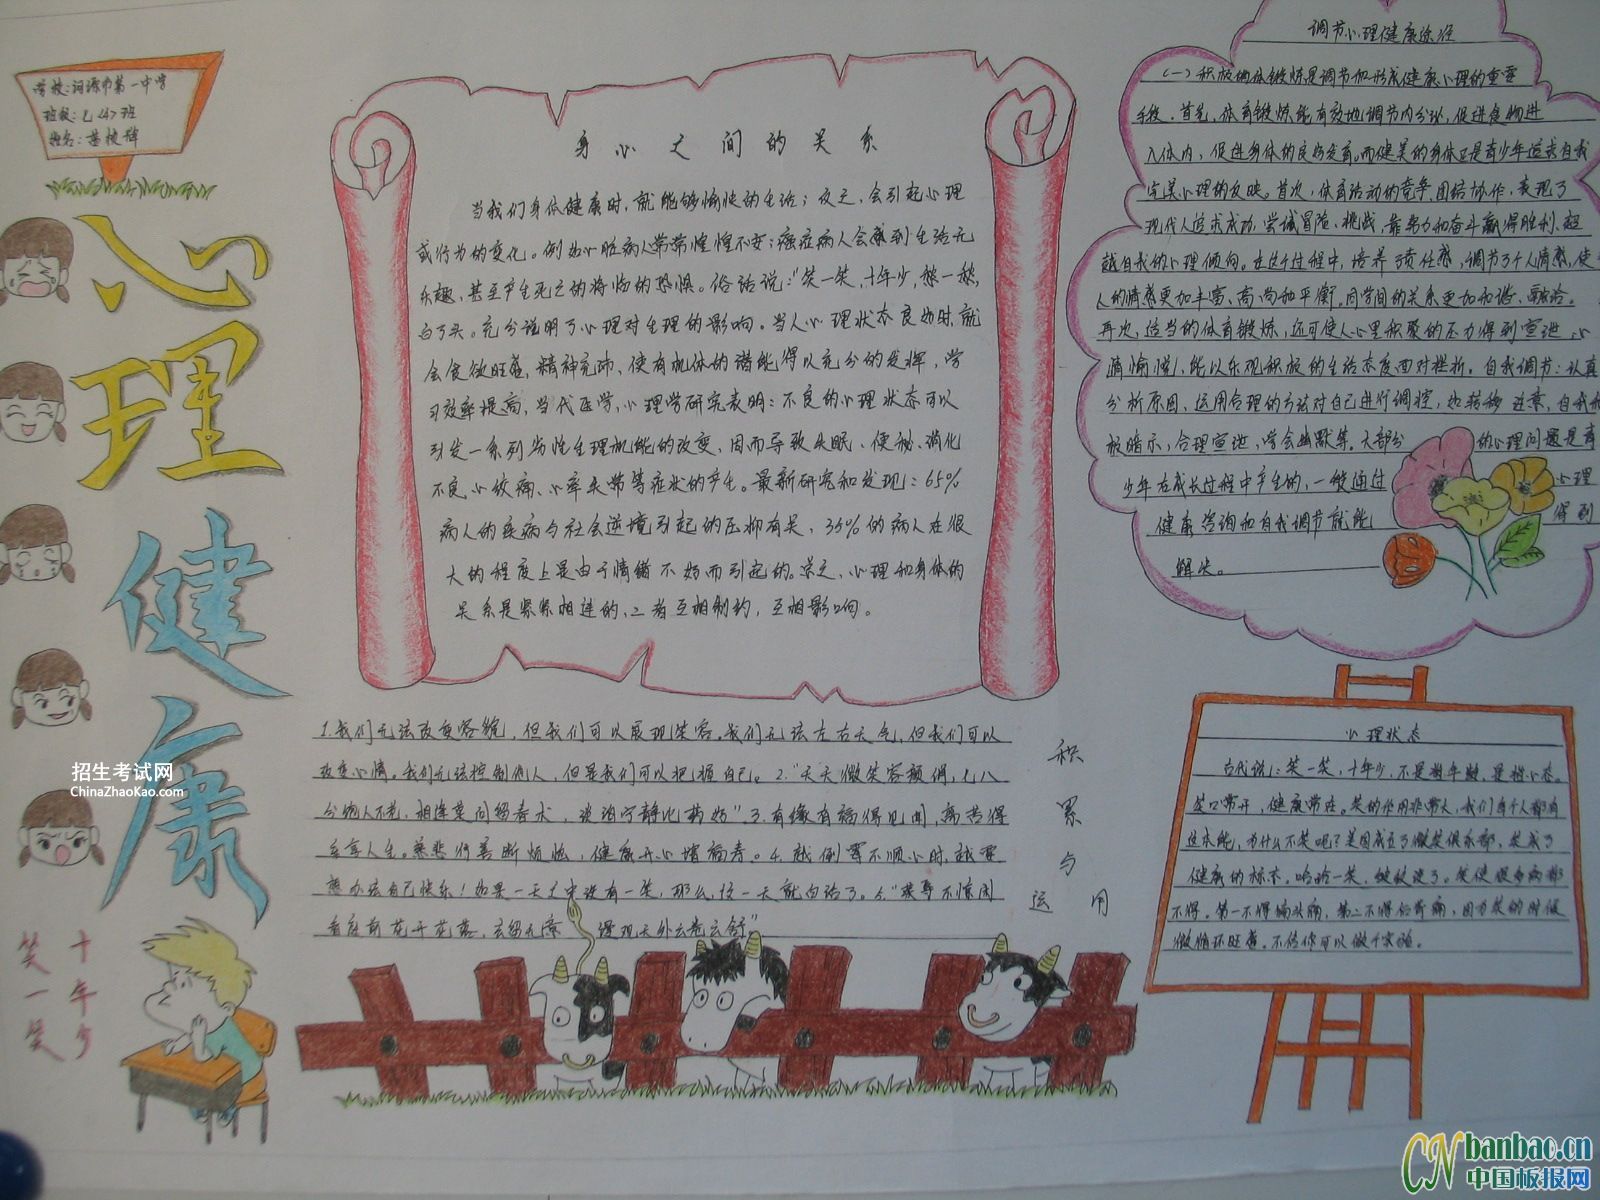 学校:河源市第一中学
班级:七<4>班
姓名:
心理健康
笑一笑
十年少
身心之间的关系
当我们身体健康时,就能够愉快的生活;反之,会引起心理
或行为的变化。例如心脏病人常常惶惶不安;癌症病人会感到生活无
乐趣,甚至产生死亡的将临的恐惧。俗话说:"笑一笑,十年少,愁一愁,
白了头。充分说明了心理对生理的影响。当人心理状态良好时,就
会食欲旺盛,精神充沛,使有机体的潜能得以充分的发挥,学
习效率提高,当代医学,心理学研究表明:不良的心理状态可以
引发一系列劣性生理机能的改变,因而导致失眠、便秘、消化
不良、心绞痛、心率失常等症状的产生。最新研究和发现:65%
病人的疾病与社会逆境引起的压抑有关,35%的病人在很
大的程度上是由于情绪不好而引起的。总之,心理和身体的
关系是紧紧相连的,二者互相制约,互相影响。
调节心理健康途径
(一)积极的体锻炼是调节和形成健康心理的重要
手段。首先,体育锻炼能有效地调节内分泌,促进食物进
入体内,促进身体的良好发育。而健美的身体正是青少年追求自我
完美心理的反映。首次,体育活动的竞争,团结协作,表现了
现代人追求成功,尝试冒险、挑战,靠努力和奋斗赢得胜利、超
越自我的心理倾向。在这个过程中,培养了责任感,调节了个人情感,使
人的情感更加丰富、高尚和平衡。同学间的关系更加和谐、融洽。
再次,适当的体育锻炼,还可使人心里积聚的压力得到宣泄,心
情愉悦,能以乐观积极的生活态度面对挫折。自我调节:认真
分析原因,运用合理的方法对自己进行调控,如转移注意,自我积
极暗示,合理宣泄,学会幽默等。大部分的心理问题是青
少年在成长过程中产生的,一般通过心理
健康咨询和自我调节就能得到
解决。
1.我们无法改变容貌,但我们可以展现笑容。我们无法左右天气,但我们可以
改变心情。我们无法控制他人,但是我们可以把握自己。2."天天微笑容颜俏,七八
分饱人不老,相逢莫问留春术,淡泊宁静比药好"。3.
4.越倒霉不顺心时,越要
想办法自己快乐!如果一天之中没有一笑,那么,这一天就白活了。
看庭前花开花落,去留无意 漫观天外云卷云舒"
积累与运用
心理状态
古代说:笑一笑,十年少,不是指年龄,是指心态。
笑口常开,健康常在。笑的作用非常大,我们每个人都有
这本能,为什么不笑呢?美国成立了微笑俱乐部,笑成了
健康的标志。哈哈一笑,皱纹没了。笑使很多病都
不得。第一不得偏头痛,第二不得后背痛,因为笑的时候
微循环旺盛。不信你可以做个实验。
招生考试网
ChinaZhaoKao.com
CN banbao.cn
中国板报网